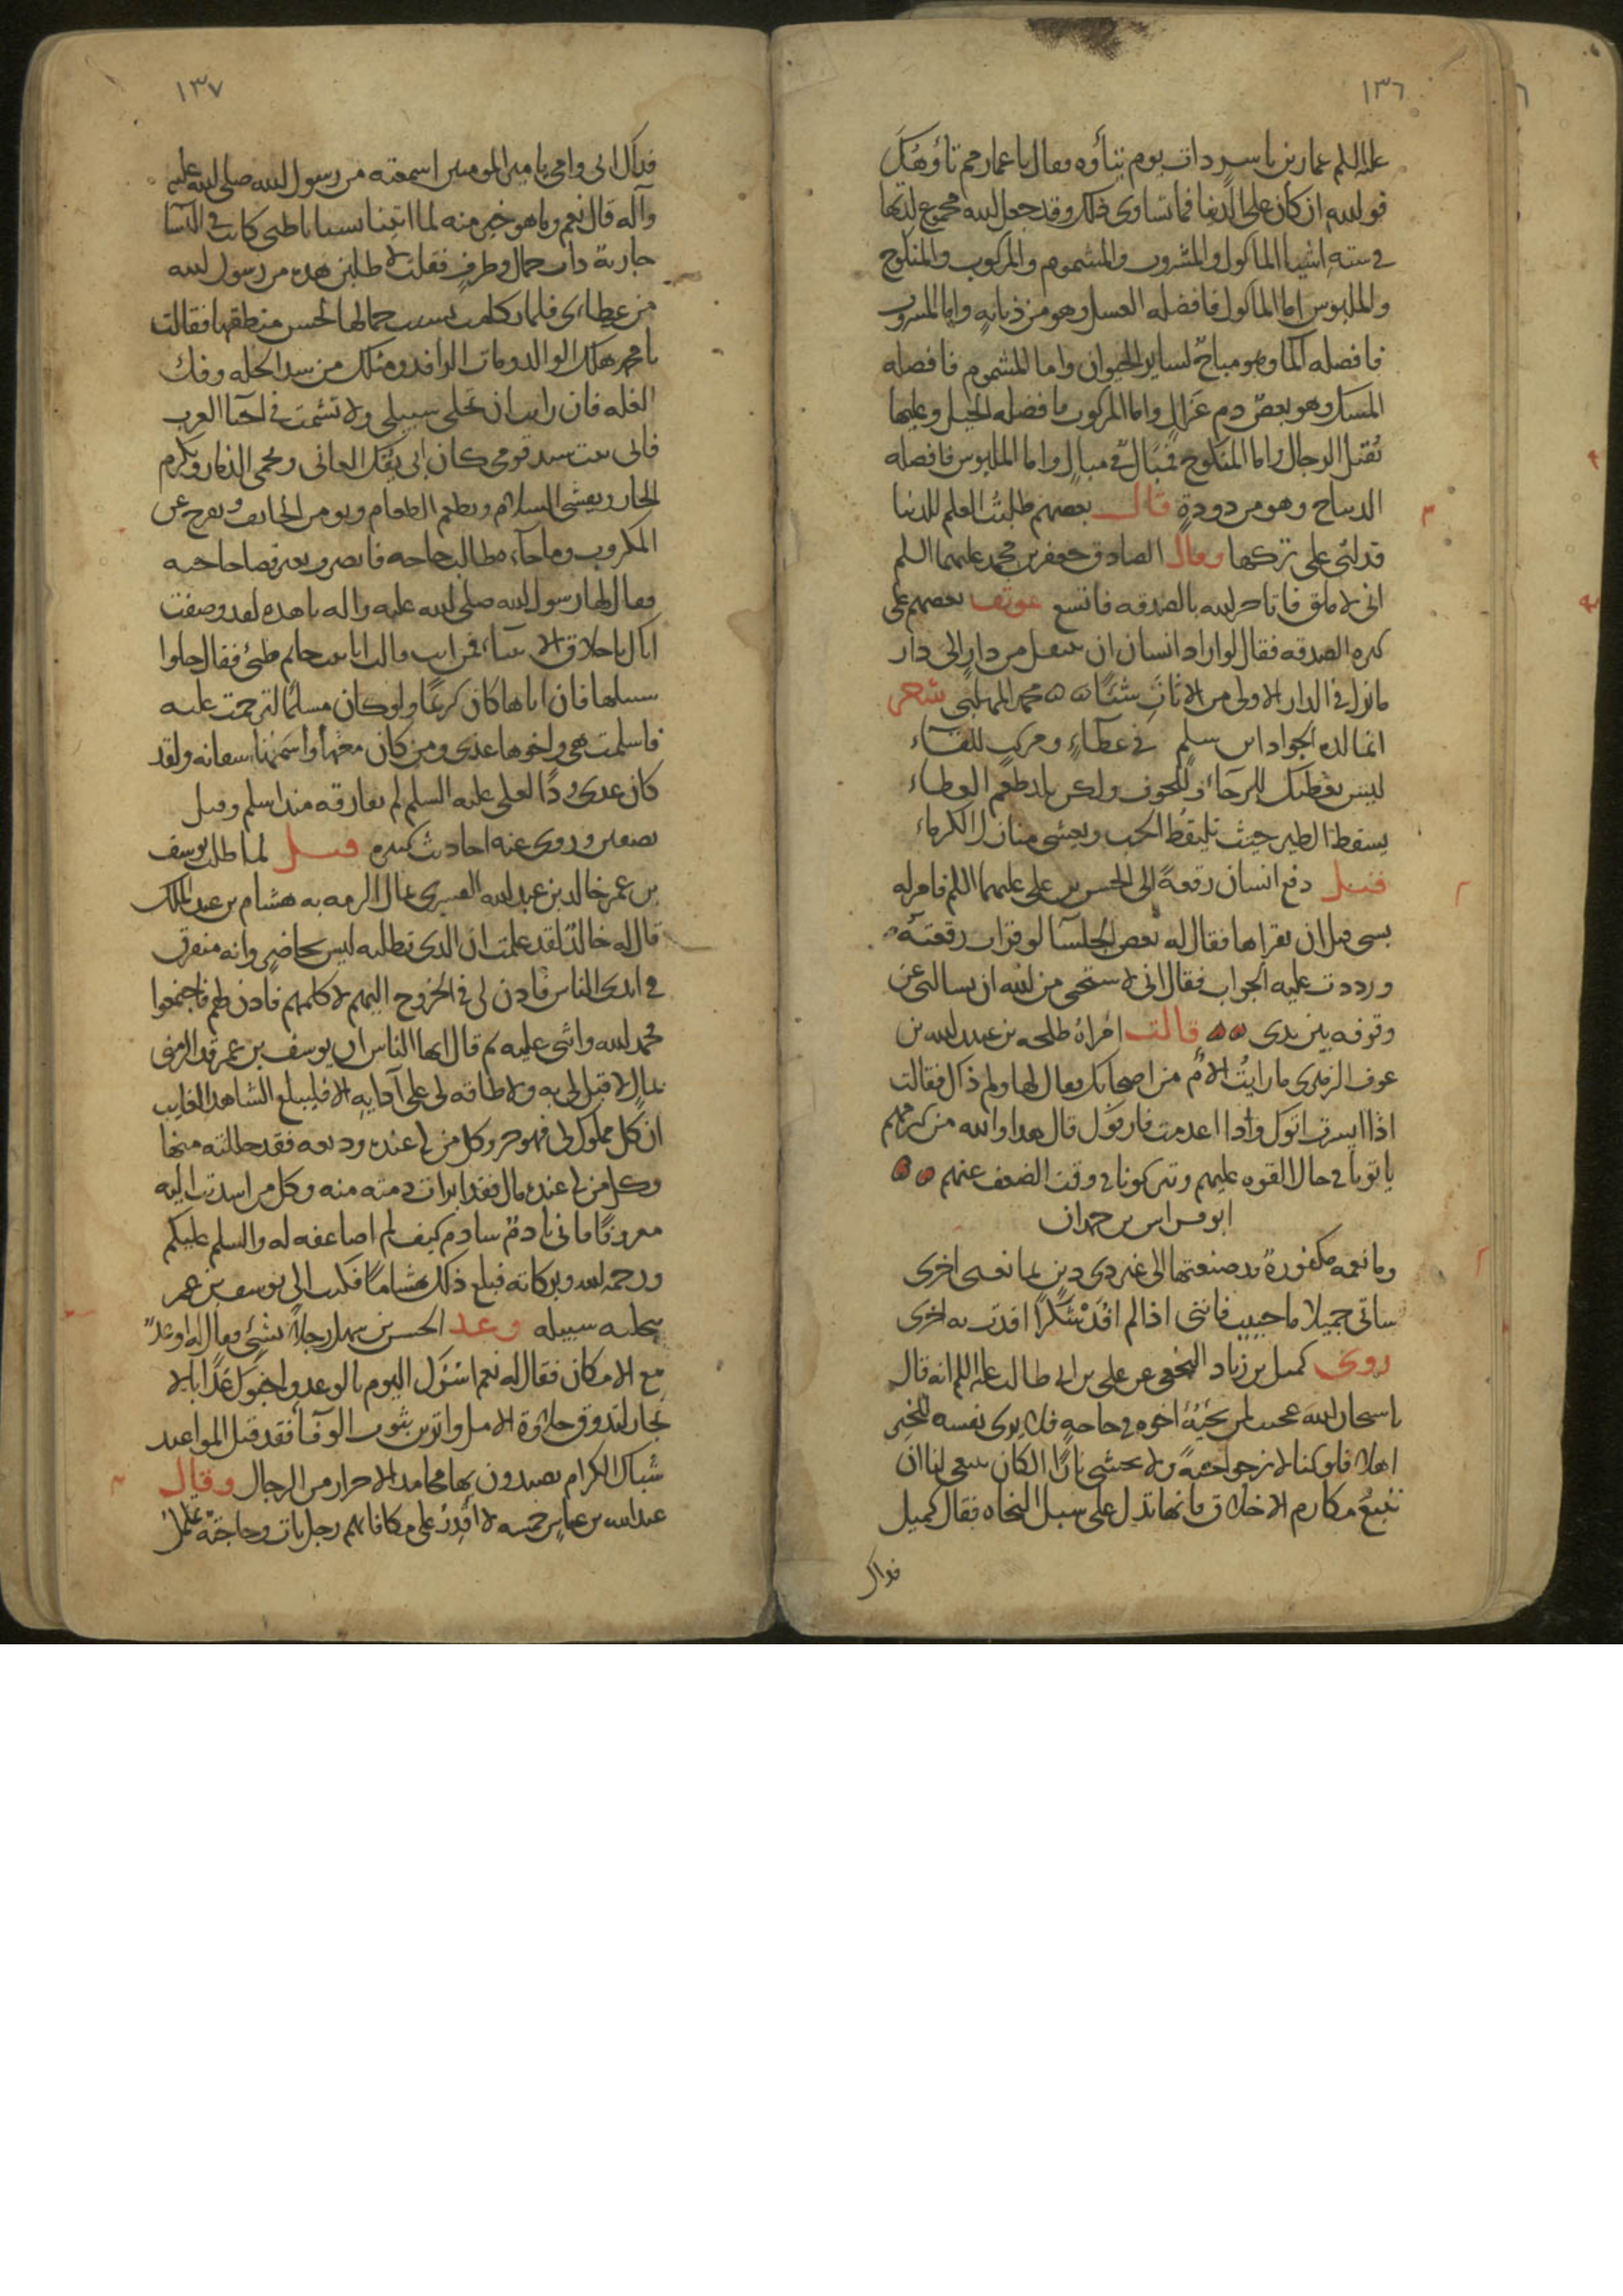 ١٣٦
عليه السلم عمار بن ياسر ذات يوم يتأوه وقال يا عمار مم تأوهك
فو الله ان كان على الدنيا فما تساوى ذلك وقد جعل الله مجموع لذتها
في ستة اشيا الماكول والمشروب والمشموم والمركوب والمنكوح
والملبوس اما الماكول فافضله العسل وهو من ذبابه واما المشروب
فافضله الما وهو مباح لساير الحيوان واما المشموم فافضله
المسك وهو بعض دم غزال واما المركوب فافضله الخيل وعليها
تقتل الرجال واما المنكوح فمبال في مبال واما الملبوس فافضله
الديباج وهو من دودة قال بعضهم طلبت العلم للدنيا
فدلني على تركها وقال الصادق جعفر بن محمد عليهما السلم
اني لاملق فاتاجر الله بالصدقه فاتسع عوتب بعضهم على
كثره الصدقه فقال لو اراد انسان ان ينتقل من دار الى دار
ما ترك في الدار الاولى من الاثاث شيئا محمد المهلبي شعر
انما لذه الجواد ابن سلم في عطاء ومركب للقاء
ليس يعطيك للرجاء وللخوف ولكن يلذ طعم العطاء
يسقط الطير حيث يلتقط الحب ويغشى منازل الكرماء
قيل دفع انسان رقعة الى الحسن بن علي عليهما السلم فامر له
بشي قبل ان يقراها فقال له بعض الجلسا لو قرات رقعته
ورددت عليه الجواب فقال اني لاستحيى من الله ان يسالني عن
وقوفه بين يدى قالت امراة طلحه بن عبد الله بن
عوف الزهرى ما رايت الام من اصحابك فقال لها ولم ذاك فقالت
اذا ايسرت اتوك واذا اعدمت فارقوك قال هذا والله من كرمهم
ياتونا في حال القوه عليهم ويتركونا في وقت الضعف عنهم
ابو فراس بن حمدان
وما نعمه مكفورة قد صنعتها الى غير ذى دين بما نعتى اخرى
ساتى جميلا ما حييت فانني اذا لم افد شكرا افدت به اخرى
روى كميل بن زياد النخعي عن علي بن ابي طالب عليه السلم انه قال
يا سبحان الله عجب لمن يجيئه اخوه في حاجه فلا يرى نفسه للخير
اهلا فلو كنا لا نرجو جنة ولا نخشى نارا لكان ينبغي لنا ان
نتبع مكارم الاخلاق فانها تدل على سبل النجاه فقال كميل
فداك
١٣٧
فداك ابي وامي يا امير المومنين اسمعته من رسول الله صلى الله عليه
وآله قال نعم وما هو خير منه لما اتينا بسبايا طيى كانت في النسا
جارية ذات جمال وظرف فقلت لاطلبن هذه من رسول الله
من عطاى فلما تكلمت نسيت جمالها لحسن منطقها فقالت
يا محمد هلك الوالد ومات الوافد ومثلك من سد الخله وفك
الغله فان رايت ان تخلى سبيلي ولا تشمت في احيا العرب
فاني بنت سيد قومي كان ابي يفك العاني ويحمي الذمار ويكرم
الجار ويفشى السلام ويطعم الطعام ويومن الخايف ويفرج عن
المكروب وما جاءه طالب حاجه فانصرف بغير قضا حاجته
فقال لها رسول الله صلى الله عليه واله يا هذه لقد وصفت
اباك باخلاق الانبياء فمن ابوك قالت انا بنت حاتم طيئ فقال خلوا
سبيلها فان اباها كان كريما ولو كان مسلما لترحمت عليه
فاسلمت هي واخوها عدى ومن كان معهما واسمها سفانه ولقد
كان عدى ودا لعلي عليه السلم لم يفارقه منذ اسلم وقتل
بصفين وروى عنه احاديث كثيره قيل لما طلب يوسف
بن عمر خالد بن عبد الله القسرى بمال الزمه به هشام بن عبد الملك
قال له خالد لقد علمت ان الذى تطلبه ليس بحاضر وانه متفرق
في ايدى الناس فاذن لي في الخروج اليهم لاكلمهم فاذن لهم فاجتمعوا
فحمد الله واثنى عليه ثم قال ايها الناس ان يوسف بن عمر قد الزمني
بمال لا قبل لي به ولا طاقه لي على آدايه الا فليبلغ الشاهد الغايب
ان كل مملوك لي فهو حر وكل من لي عنده وديعه فقد حللته منها
وكل من لي عنده مال فقد ابرات ذمته منه وكل من اسديت اليه
معروفا فاني نادم سادم كيف لم اضاعفه له والسلم عليكم
ورحمه الله وبركاته فبلغ ذلك هشاما فكتب الى يوسف بن عمر
بتخليه سبيله وعد الحسن بن سهل رجلا بشئ فقال له او عد
مع الامكان فقال له نعم اسئرك اليوم بالوعد واحبوك غدا بالا
نجاز لتذوق حلاوة الامل واتزين بثوب الوفا فقد قيل المواعيد
شباك الكرام يصيدون بها محامد الاحرار من الرجال وقال
عبد الله بن عباس خمسه لا اقدر على مكافاتهم رجل بات وحاجته تململ